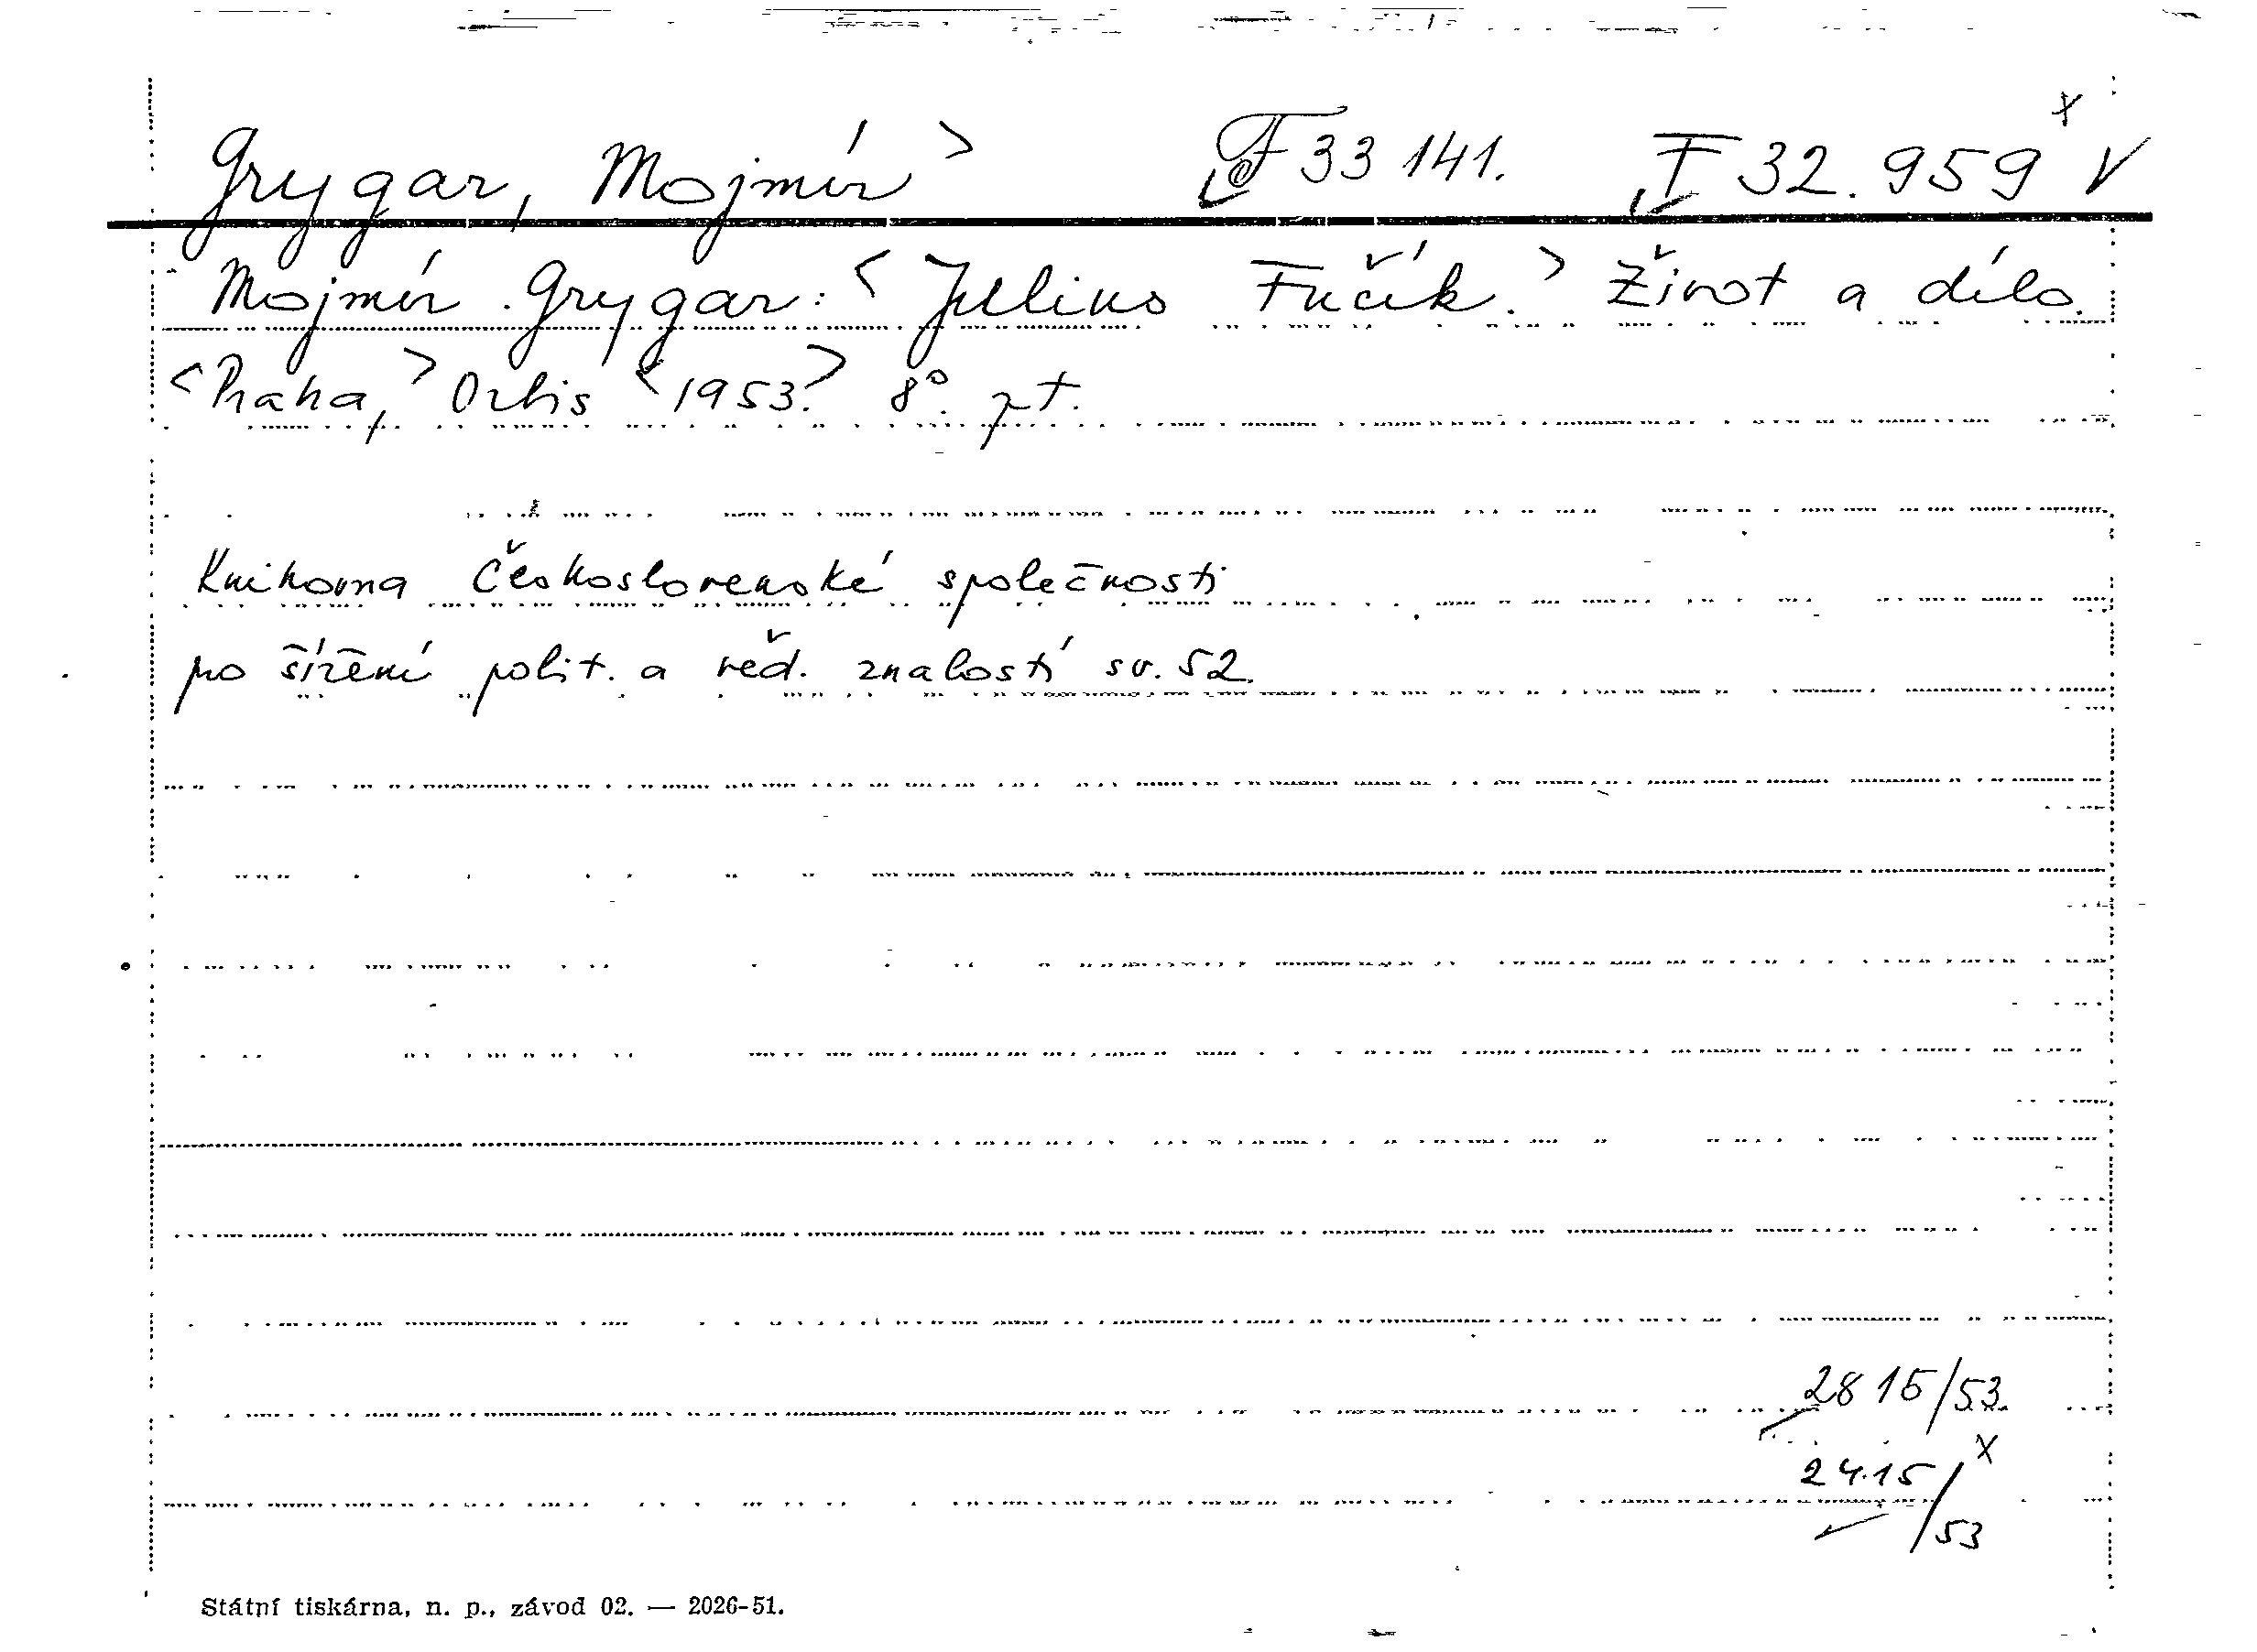 Grygar, Mojmír > F 33 141. I 32.959 x V
Mojmír Grygar: < Julius Fučík. > Život a dílo.
< Praha, > Orbis < 1953. > 8°. pt.
Knihovna Československé společnosti
pro šíření polit. a věd. znalostí sv. 52.
2815/53.
2415/53 x
Státní tiskárna, n. p., závod 02. — 2026-51.